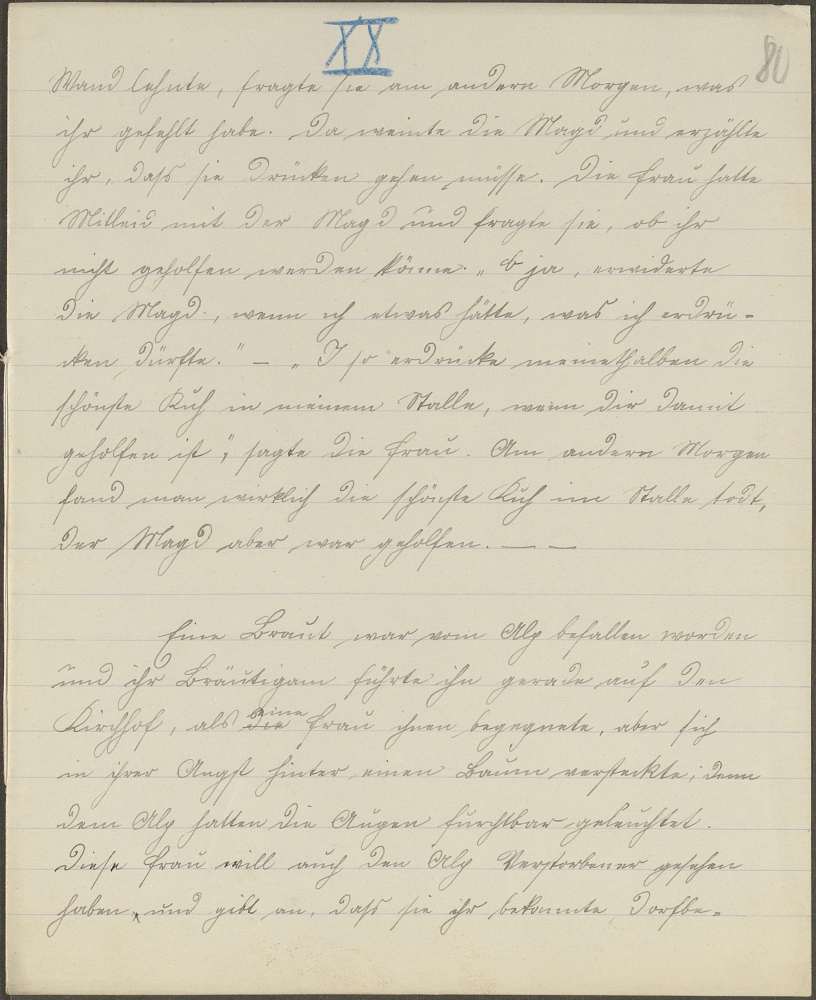 XX
80
Wand lehnte, fragte sie am andern Morgen, was
ihr gefehlt habe. Da weinte die Magd und erzählte
ihr, dass sie drücken gehen müsse. Die Frau hatte
Mitleid mit der Magd und fragte sie, ob ihr
nicht geholfen werden könne. „O ja, erwiderte
die Magd, wenn ich etwas hätte, was ich erdrü-
cken dürfte.“ — „I so erdrücke meinethalben die
schönste Kuh in meinem Stalle, wenn dir damit
geholfen ist“, sagte die Frau. Am andern Morgen
fand man wirklich die schönste Kuh im Stalle todt,
der Magd aber war geholfen. — —
Eine Braut war vom Alp befallen worden
und ihr Bräutigam führte ihn gerade auf den
Kirchhof, als die eine Frau ihnen begegnete, aber sich
in ihrer Angst hinter einen Baum versteckte; denn
dem Alp hatten die Augen furchtbar geleuchtet.
Diese Frau will auch den Alp Verstorbener gesehen
haben, und gibt an, dass sie ihr bekannte Dorfbe-